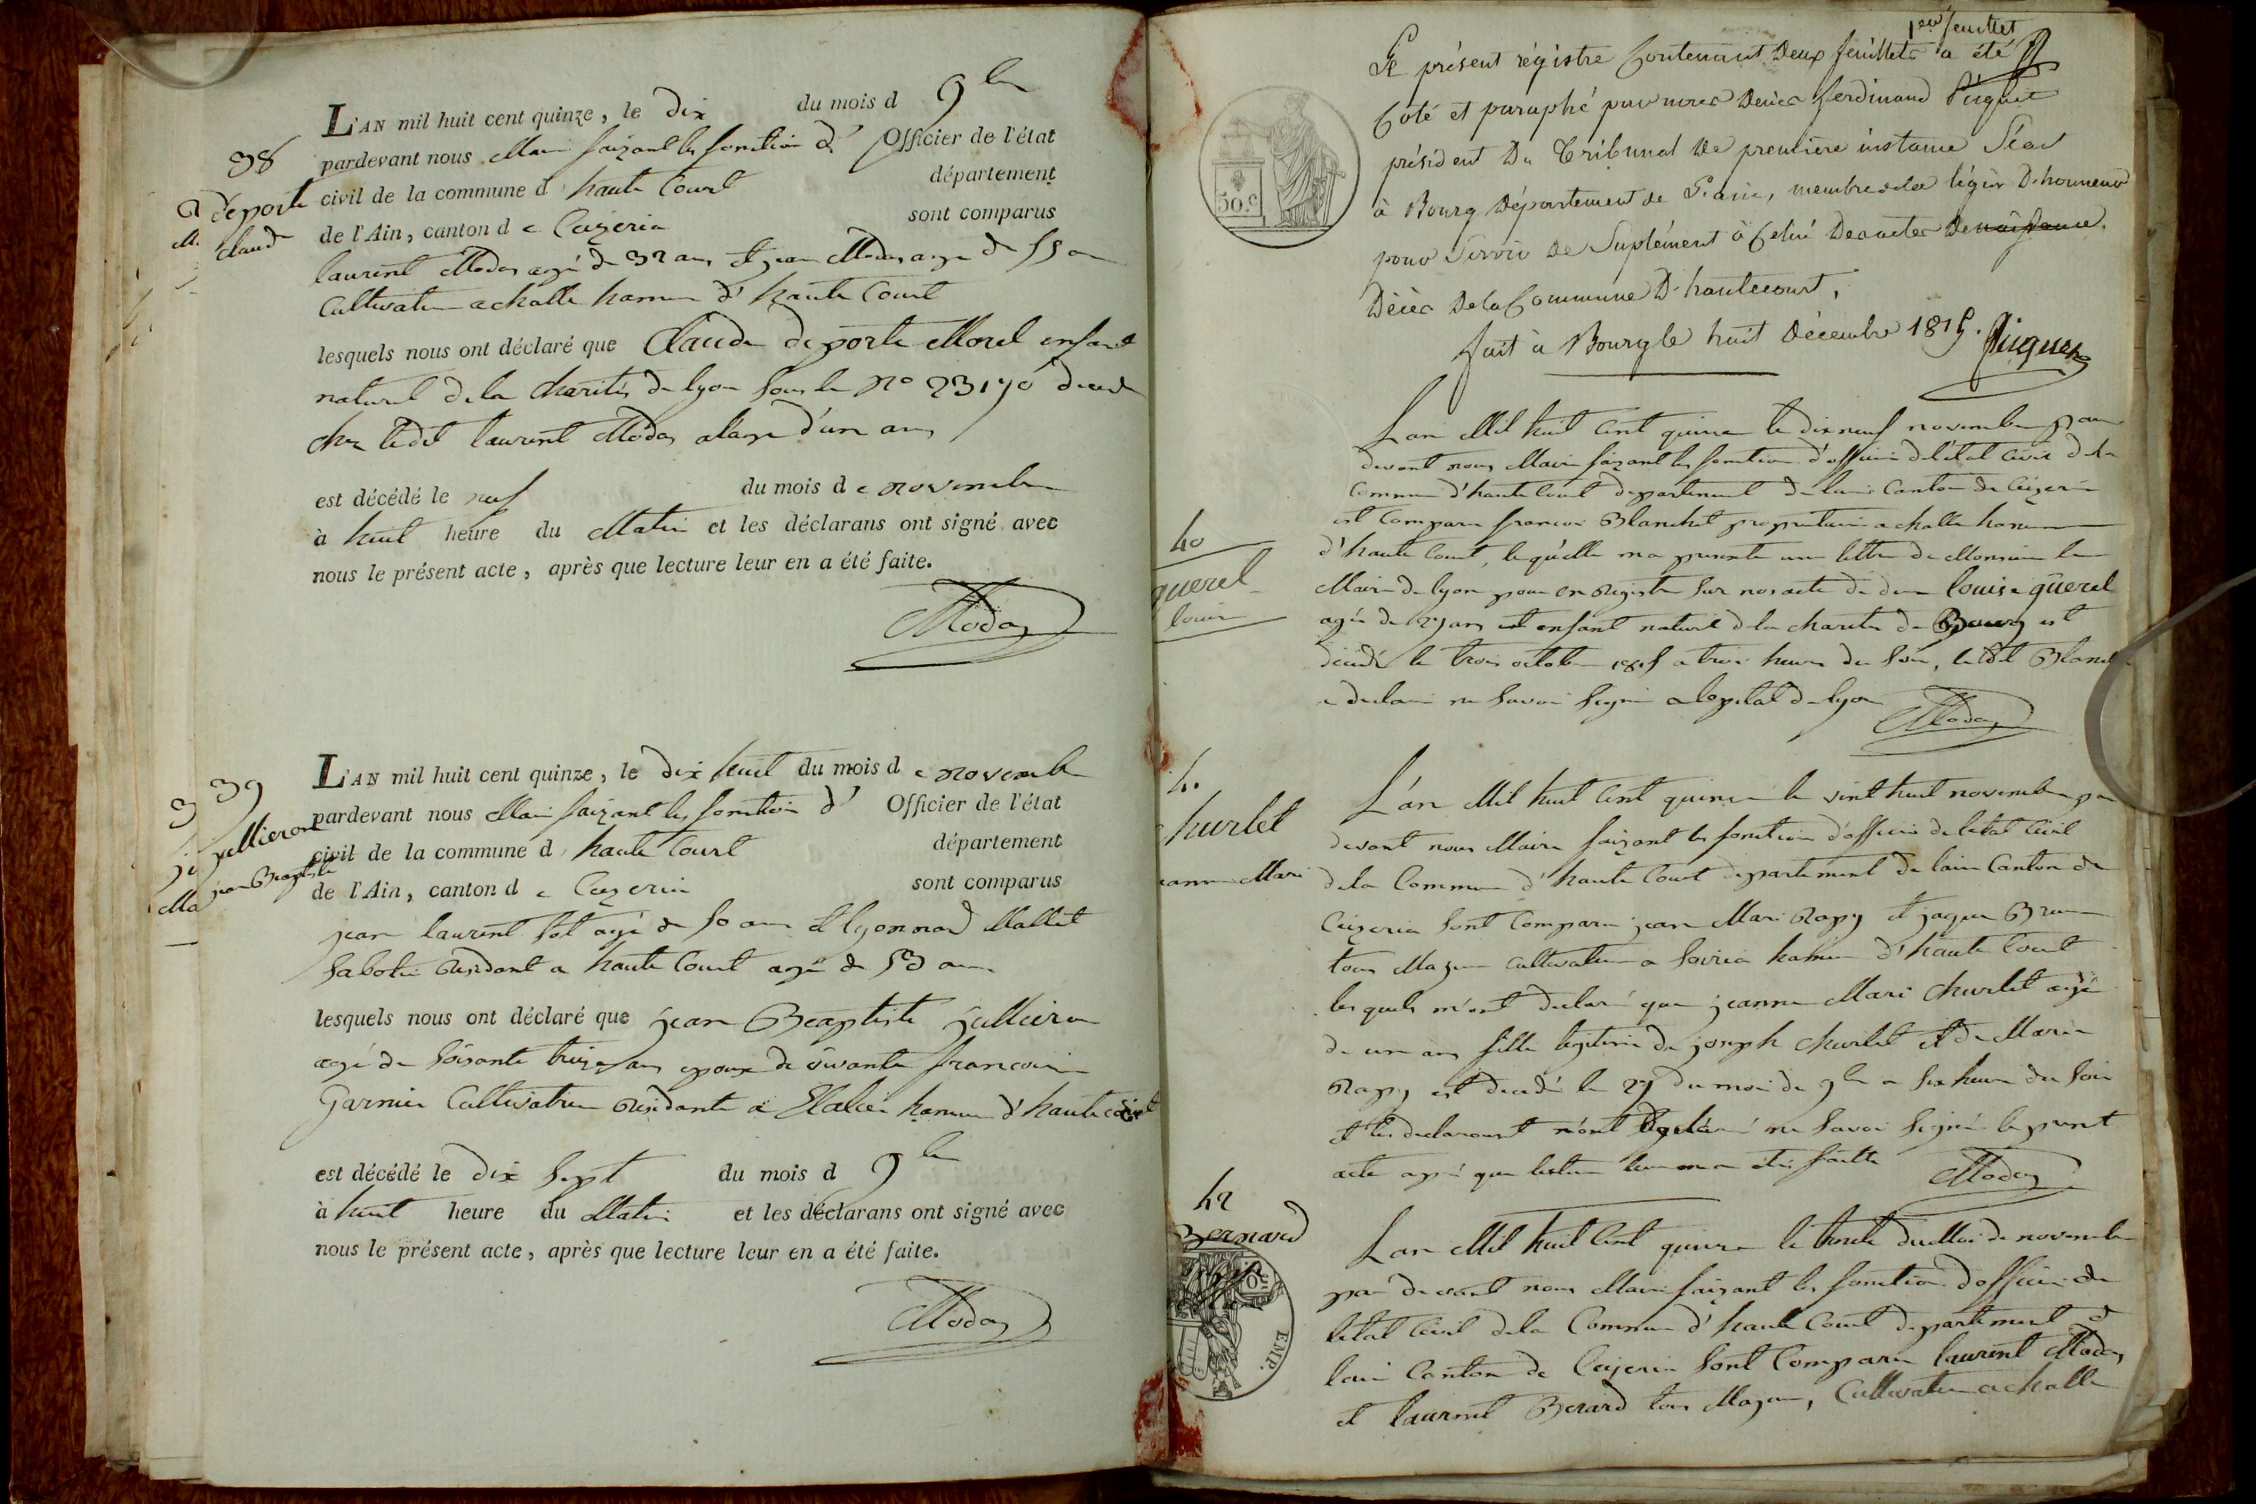 38
déporte
claud
L'AN mil huit cent quinze, le dix du mois d 9bre
pardevant nous Maire faizant les fonction d' Officier de l'état
civil de la commune d haute Court département
de l'Ain, canton d e Ceyzeria sont comparus
laurent Modas agé de 32 ans et jean Modas agé de 55 an
Cultivateur a challe hameau d' haute Court
lesquels nous ont déclaré que Claude deporte Morel enfant
naturel de la charité de lyon sous le no 23190 decedé
chez ledit laurent Modas a lage d'un an
est décédé le neuf du mois d e novembre
à huit heure du Matin et les déclarans ont signé avec
nous le présent acte, après que lecture leur en a été faite.
Modas
39
jullieron
jean Beaptiste
L'AN mil huit cent quinze, le dix huit du mois d e novembre
pardevant nous Maire faizant les fonction d' Officier de l'état
civil de la commune d haute Court département
de l'Ain, canton d e Ceyzeria sont comparus
jean laurent sot agé de 50 ans et lyonnard Mallet
Sabotie residant a haute Court agé de 53 ans
lesquels nous ont déclaré que jean Beaptiste jullieron
agé de soisante treize ans epoux de vivante francoise
Garnier Cultivateur residante a hameau d' haute court
est décédé le dix sept du mois d 9bre
à huit heure du Matin et les déclarans ont signé avec
nous le présent acte, après que lecture leur en a été faite.
Modas
1er feuillet
Le présent régistre Contenant Deux feuillets a été
Coté et paraphé par nous Ferdinand Piquet
président Du Tribunal De première instance Séant
à Bourg Département de L'ain, membre de la légion D'honneur
pour Servir De Suplément à Celui Des actes De naissance
Décès De la Commune D'hautecourt,
fait à Bourg le huit Décembre 1815. Piquet
50.c
40
querel
louise
L'an Mil huit Cent quinze le dix neuf novembre par
devant nous Maire faizant les fonction d'officier de l'état civil de la
Commune d'haute Court departement de lain Canton de Ceyzeria
est Comparu francois Blanchet proprietaire a challe hameau
d'haute Court, lequelle ma presenté une lettre de Monsieur le
Maire de lyon pour en registre sur nos acte de louise querel
agée de 27 ans et enfant naturel de la charité de Bourg est
decedé le trois octobre 1815 a trois heures du soir, ledit Blanchet
a declaré ne savoir signé a lopital de lyon
Modas
churlet
jeanne Mari
L'an Mil huit Cent quinze le vint huit novembre par
devant nous Maire faizant les fonction d'officier de letat Civil
de la Commune d'haute Court departement de lain Canton de
Ceyzeria sont Comparu jean Mari Rapy et jaque Brun
tous Majeur cultivateur a hameau d'haute Court
les quels m'ont declaré que jeanne Mari churlet agé
de un ans fille legitime de joseph churlet et de Marie
Rapy est decedé le 27 du mois de 9bre a six heure du soir
et les declarant m'ont declaré ne savoir signé le present
acte apré que lecture leur en a été faitte
Modas
42
Bernard
EMP.
L'an Mil huit Cent quinze le trente du Mois de novembre
par devant nous Maire faizant les fonction d'officier de
letat Civil de la Commune d'haute Court departement d
lain Canton de Ceyzeria sont Comparu laurent Modas
et laurent Berard tous Majeur, Cultivateur a challe